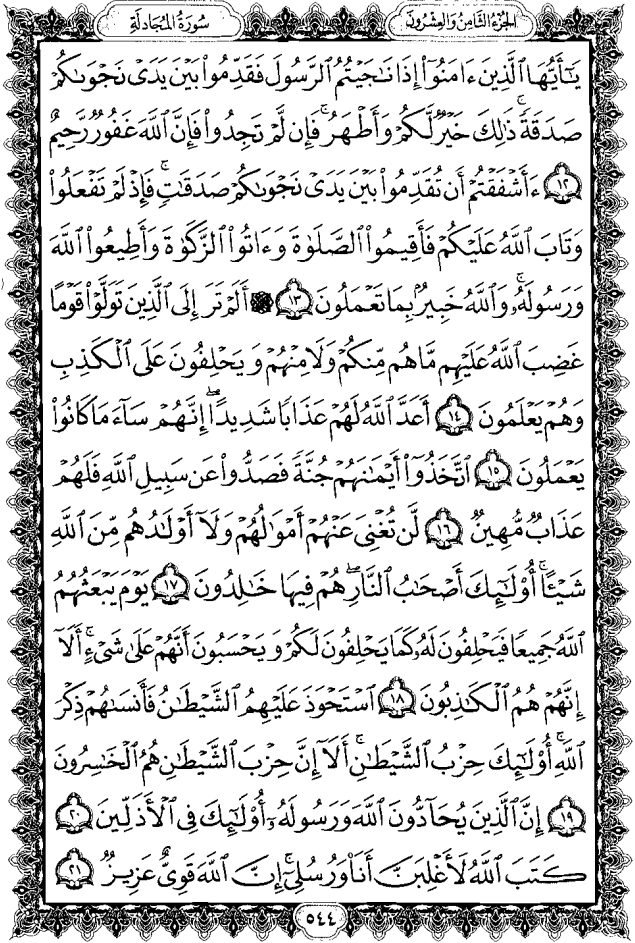 الجزء الثامن والعشرون
سورة المجادلة
يَٰٓأَيُّهَا ٱلَّذِينَ ءَامَنُوٓا۟ إِذَا نَٰجَيْتُمُ ٱلرَّسُولَ فَقَدِّمُوا۟ بَيْنَ يَدَىْ نَجْوَىٰكُمْ
صَدَقَةً ۚ ذَٰلِكَ خَيْرٌ لَّكُمْ وَأَطْهَرُ ۚ فَإِن لَّمْ تَجِدُوا۟ فَإِنَّ ٱللَّهَ غَفُورٌ رَّحِيمٌ
١٢ ءَأَشْفَقْتُمْ أَن تُقَدِّمُوا۟ بَيْنَ يَدَىْ نَجْوَىٰكُمْ صَدَقَٰتٍ ۚ فَإِذْ لَمْ تَفْعَلُوا۟
وَتَابَ ٱللَّهُ عَلَيْكُمْ فَأَقِيمُوا۟ ٱلصَّلَوٰةَ وَءَاتُوا۟ ٱلزَّكَوٰةَ وَأَطِيعُوا۟ ٱللَّهَ
وَرَسُولَهُۥ ۚ وَٱللَّهُ خَبِيرٌۢ بِمَا تَعْمَلُونَ ١٣ ۞ أَلَمْ تَرَ إِلَى ٱلَّذِينَ تَوَلَّوْا۟ قَوْمًا
غَضِبَ ٱللَّهُ عَلَيْهِم مَّا هُم مِّنكُمْ وَلَا مِنْهُمْ وَيَحْلِفُونَ عَلَى ٱلْكَذِبِ
وَهُمْ يَعْلَمُونَ ١٤ أَعَدَّ ٱللَّهُ لَهُمْ عَذَابًا شَدِيدًا ۖ إِنَّهُمْ سَآءَ مَا كَانُوا۟
يَعْمَلُونَ ١٥ ٱتَّخَذُوٓا۟ أَيْمَٰنَهُمْ جُنَّةً فَصَدُّوا۟ عَن سَبِيلِ ٱللَّهِ فَلَهُمْ
عَذَابٌ مُّهِينٌ ١٦ لَّن تُغْنِىَ عَنْهُمْ أَمْوَٰلُهُمْ وَلَآ أَوْلَٰدُهُم مِّنَ ٱللَّهِ
شَيْـًٔا ۚ أُو۟لَٰٓئِكَ أَصْحَٰبُ ٱلنَّارِ ۖ هُمْ فِيهَا خَٰلِدُونَ ١٧ يَوْمَ يَبْعَثُهُمُ
ٱللَّهُ جَمِيعًا فَيَحْلِفُونَ لَهُۥ كَمَا يَحْلِفُونَ لَكُمْ ۖ وَيَحْسَبُونَ أَنَّهُمْ عَلَىٰ شَىْءٍ ۚ أَلَآ
إِنَّهُمْ هُمُ ٱلْكَٰذِبُونَ ١٨ ٱسْتَحْوَذَ عَلَيْهِمُ ٱلشَّيْطَٰنُ فَأَنسَىٰهُمْ ذِكْرَ
ٱللَّهِ ۚ أُو۟لَٰٓئِكَ حِزْبُ ٱلشَّيْطَٰنِ ۚ أَلَآ إِنَّ حِزْبَ ٱلشَّيْطَٰنِ هُمُ ٱلْخَٰسِرُونَ
١٩ إِنَّ ٱلَّذِينَ يُحَآدُّونَ ٱللَّهَ وَرَسُولَهُۥٓ أُو۟لَٰٓئِكَ فِى ٱلْأَذَلِّينَ ٢٠
كَتَبَ ٱللَّهُ لَأَغْلِبَنَّ أَنَا۠ وَرُسُلِىٓ ۚ إِنَّ ٱللَّهَ قَوِىٌّ عَزِيزٌ ٢١
٥٤٤